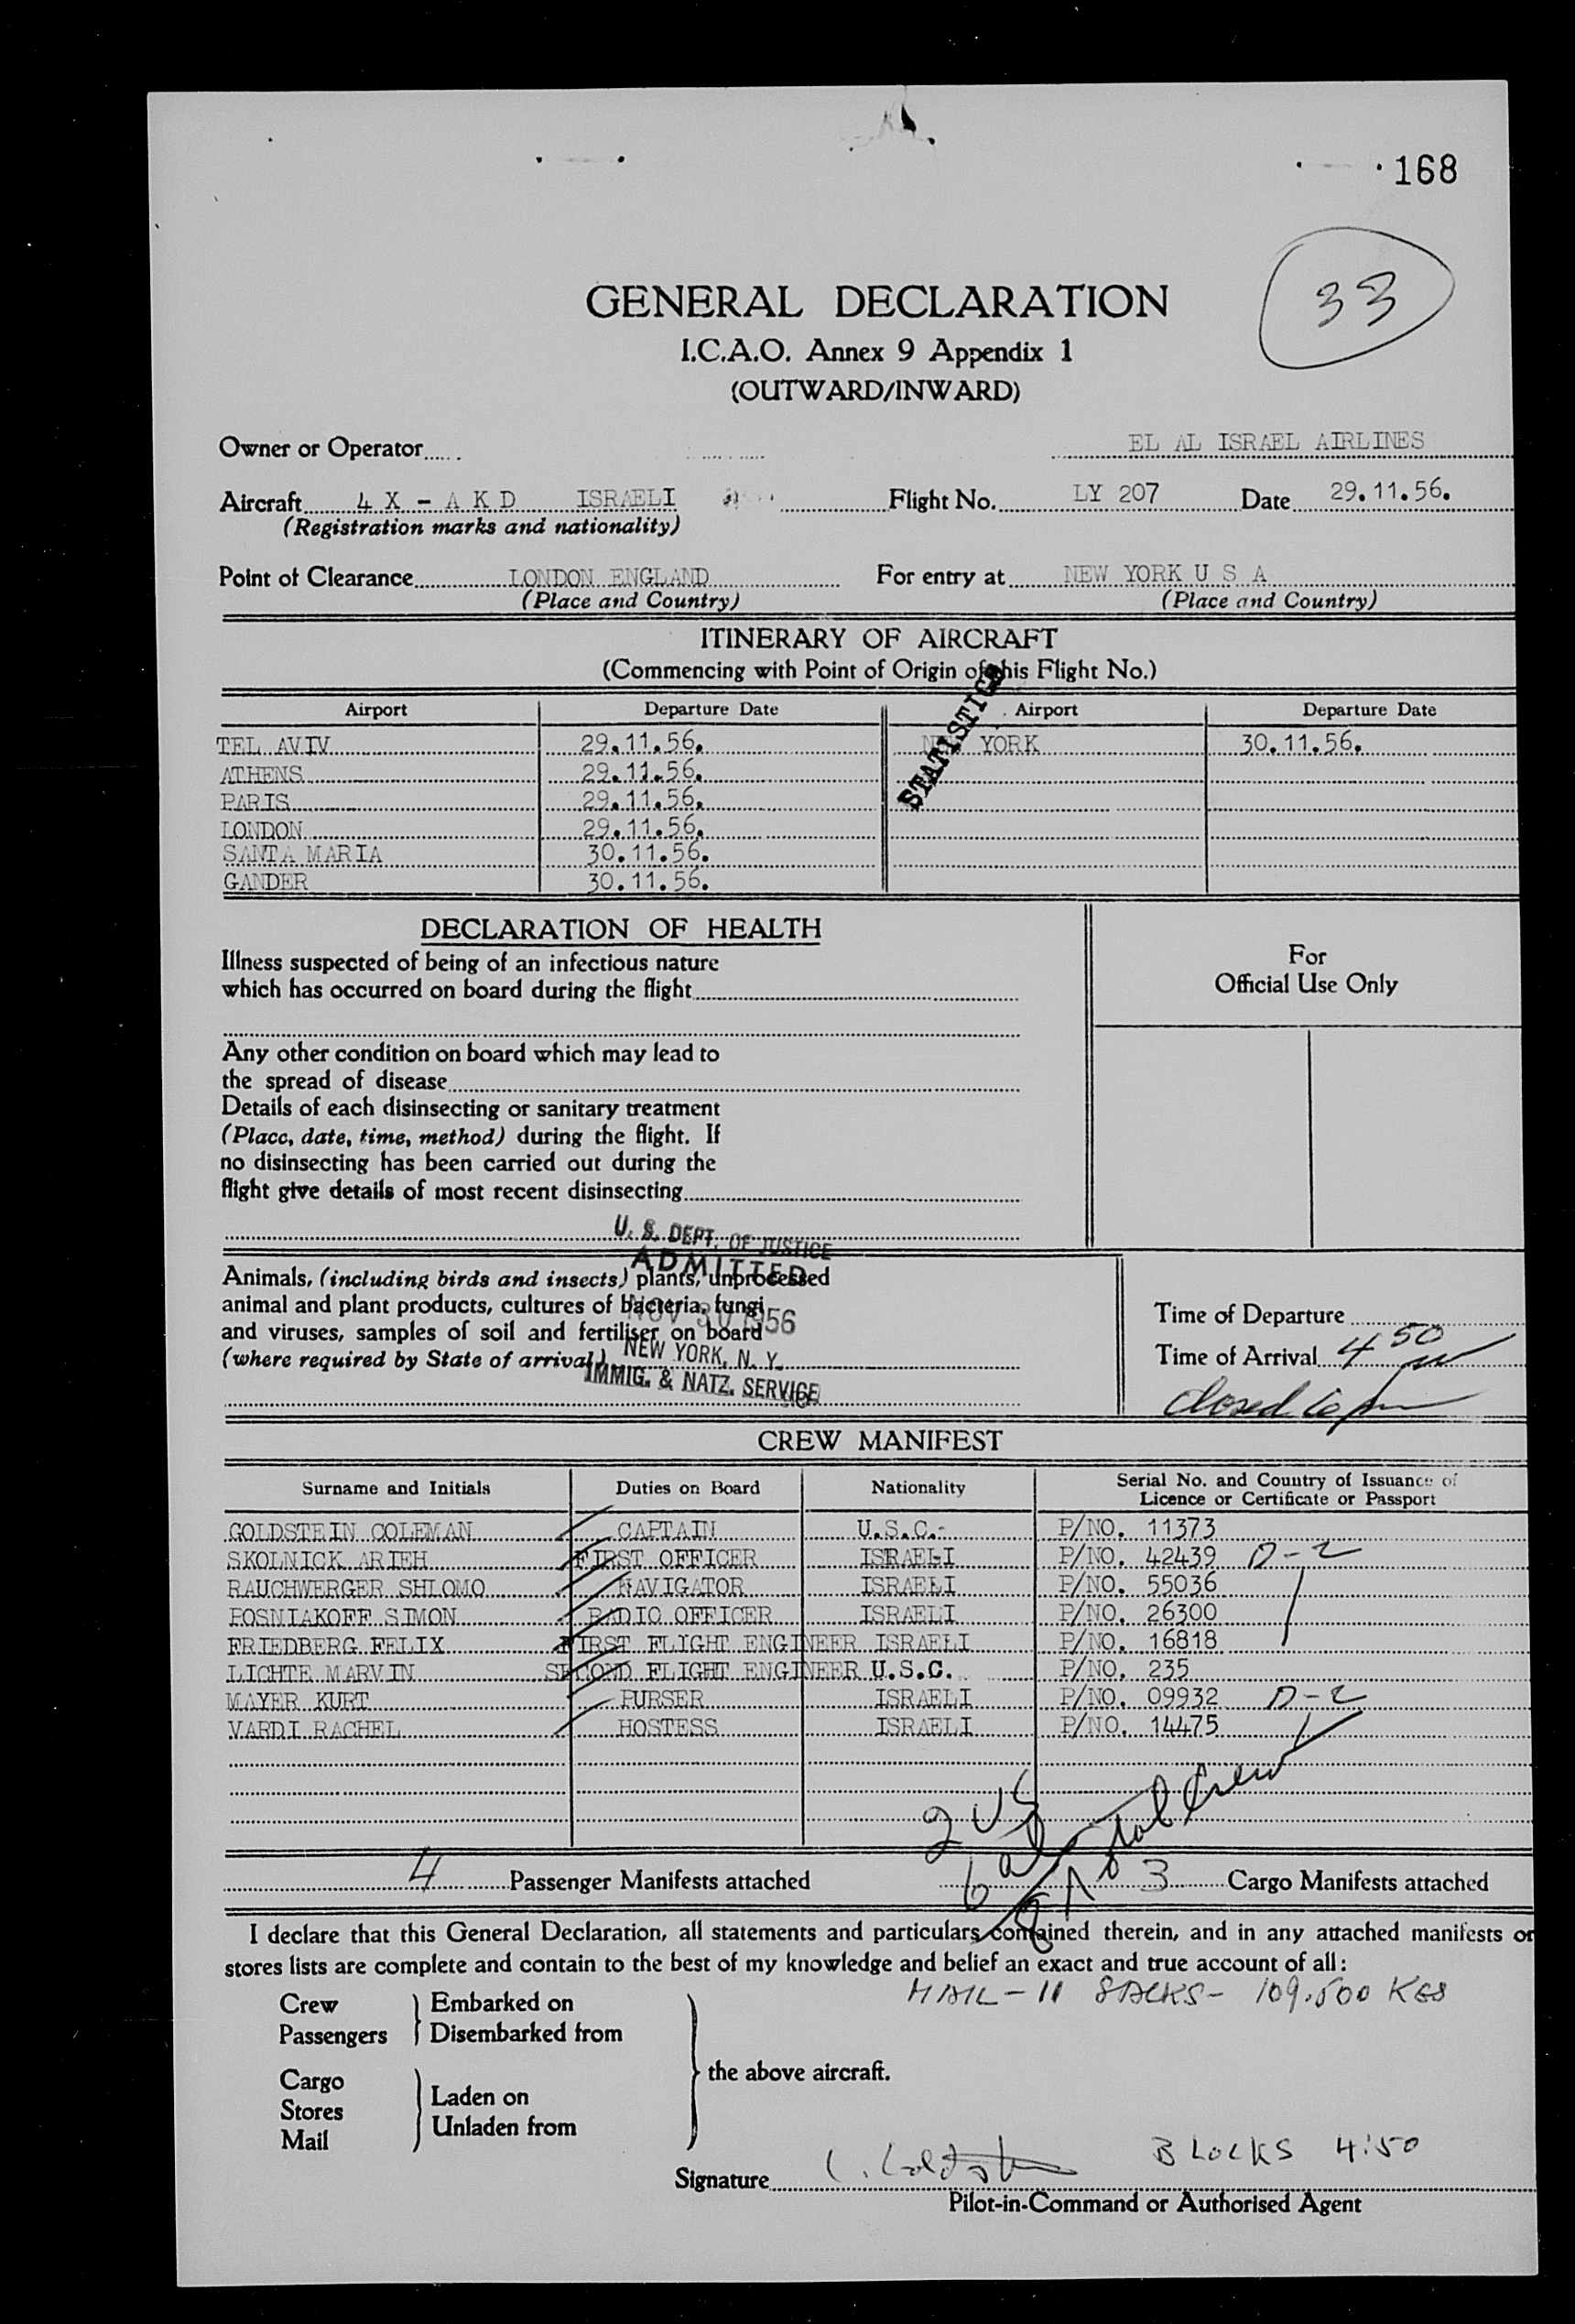 168
33
GENERAL DECLARATION
I.C.A.O. Annex 9 Appendix 1
(OUTWARD/INWARD)
Owner or Operator EL AL ISRAEL AIRLINES
Aircraft 4 X - A K D ISRAELI Flight No. LY 207 Date 29.11.56.
(Registration marks and nationality)
Point of Clearance LONDON ENGLAND For entry at NEW YORK U S A
(Place and Country) (Place and Country)
ITINERARY OF AIRCRAFT
(Commencing with Point of Origin of this Flight No.)
STATISTICS
Airport Departure Date Airport Departure Date
TEL AVIV 29.11.56. NEW YORK 30.11.56.
ATHENS 29.11.56.
PARIS 29.11.56.
LONDON 29.11.56.
SANTA MARIA 30.11.56.
GANDER 30.11.56.
DECLARATION OF HEALTH
For
Official Use Only
Illness suspected of being of an infectious nature
which has occurred on board during the flight
Any other condition on board which may lead to
the spread of disease
Details of each disinsecting or sanitary treatment
(Place, date, time, method) during the flight. If
no disinsecting has been carried out during the
flight give details of most recent disinsecting
U. S. DEPT. OF JUSTICE
ADMITTED
NOV 30 1956
NEW YORK, N. Y.
IMMIG. & NATZ. SERVICE
Animals, (including birds and insects) plants, unprocessed
animal and plant products, cultures of bacteria, fungi
and viruses, samples of soil and fertiliser on board
(where required by State of arrival)
Time of Departure
Time of Arrival 4 50
closed 6 pm
CREW MANIFEST
Surname and Initials Duties on Board Nationality Serial No. and Country of Issuance of
Licence or Certificate or Passport
GOLDSTEIN COLEMAN CAPTAIN U.S.C. P/NO. 11373
SKOLNICK ARIEH FIRST OFFICER ISRAELI P/NO. 42439 D-2
RAUCHWERGER SHLOMO NAVIGATOR ISRAELI P/NO. 55036
POSNIAKOFF SIMON RADIO OFFICER ISRAELI P/NO. 26300
FRIEDBERG FELIX FIRST FLIGHT ENGINEER ISRAELI P/NO. 16818
LICHTE MARVIN SECOND FLIGHT ENGINEER U.S.C. P/NO. 235
MAYER KURT PURSER ISRAELI P/NO. 09932 D-2
VARDI RACHEL HOSTESS ISRAELI P/NO. 14475
2 US
6 al
8 Total Crew
4 Passenger Manifests attached 3 Cargo Manifests attached
I declare that this General Declaration, all statements and particulars contained therein, and in any attached manifests or
stores lists are complete and contain to the best of my knowledge and belief an exact and true account of all:
MAIL - 11 SACKS - 109.500 KGS
Crew Embarked on
Passengers Disembarked from
the above aircraft.
Cargo
Stores Laden on
Mail Unladen from
BLOCKS 4:50
Signature C. Goldstein
Pilot-in-Command or Authorised Agent